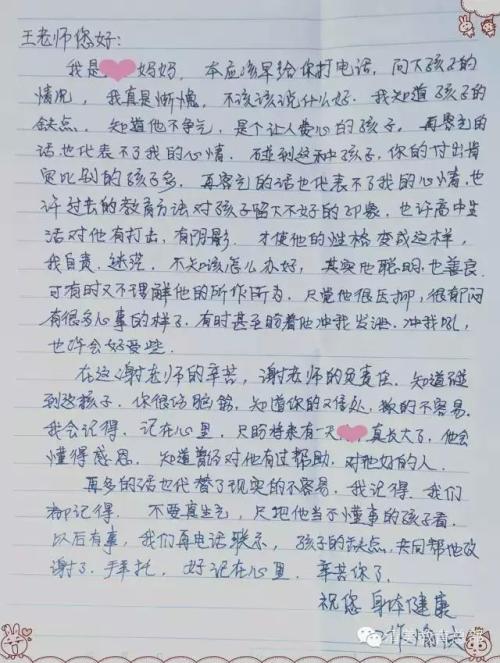 王老师您好:
我是妈妈. 本应该早给你打电话, 问下孩子的
情况, 我真是惭愧, 不该该说什么好. 我知道了孩子的
缺点. 知道他不争气, 是个让人费心的孩子. 再客气的
话也代表不了我的心情. 碰到这种孩子, 你的付出肯
定比别的孩子多. 再客气的话也代表不了我的心情. 也
许过去的教育方法对孩子留下不好的印象, 也许高中生
活对他有打击, 有阴影. 才使他的性格变成这样,
我自责. 迷茫. 不知该怎么办好, 其实他聪明, 也善良.
可有时又不理解他的所作所为, 只觉他很压抑, 很郁闷
有很多心事的样子. 有时甚至盼着他冲我发泄. 冲我吼,
也许会好受些.
在这谢老师的辛苦, 谢老师的负责任. 知道碰
到这孩子. 你很伤脑筋, 知道你的, 教的不容易.
我会记得. 记在心里, 只盼将来有一天真长大了, 他会
懂得感恩. 知道曾经对他有过帮助. 对他好的人.
再多的话也代替了现实的不容易. 我记得. 我们
都记得. 不要真生气, 只把他当个懂事的孩子看.
以后有事, 我们再电话联系, 孩子的缺点, 共同帮他改
谢了. 拜托, 好记在心里. 辛苦你了.
祝您 身体健康
工作愉快